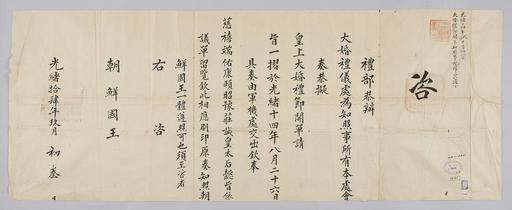 咨
禮部恭辦
大婚禮儀處為知照事所有本處會
奏恭擬
皇上大婚禮節開單請
旨一摺於光緒十四年八月二十六日
具奏由軍機處交出欽奉
慈禧端佑康頤昭豫莊誠皇太后懿旨依
議單留覽欽此相應刷印原奏知照朝
鮮國王一體遵照可也須至咨者
右 咨
朝 鮮 國 王
光緒拾肆年玖月 初叁